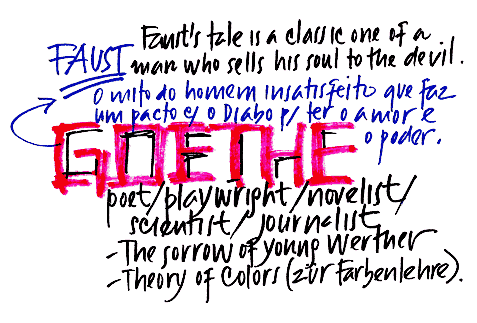 Faust's tale is a classic one of a
FAUST man who sells his soul to the devil.
O mito do homem insatisfeito que faz
um pacto c/ o Diabo p/ ter o amor e
o poder.
GOETHE
poet/playwright/novelist/
scientist/journalist
-The sorrow of young Werther
-Theory of Colors (zur Farbenlehre).